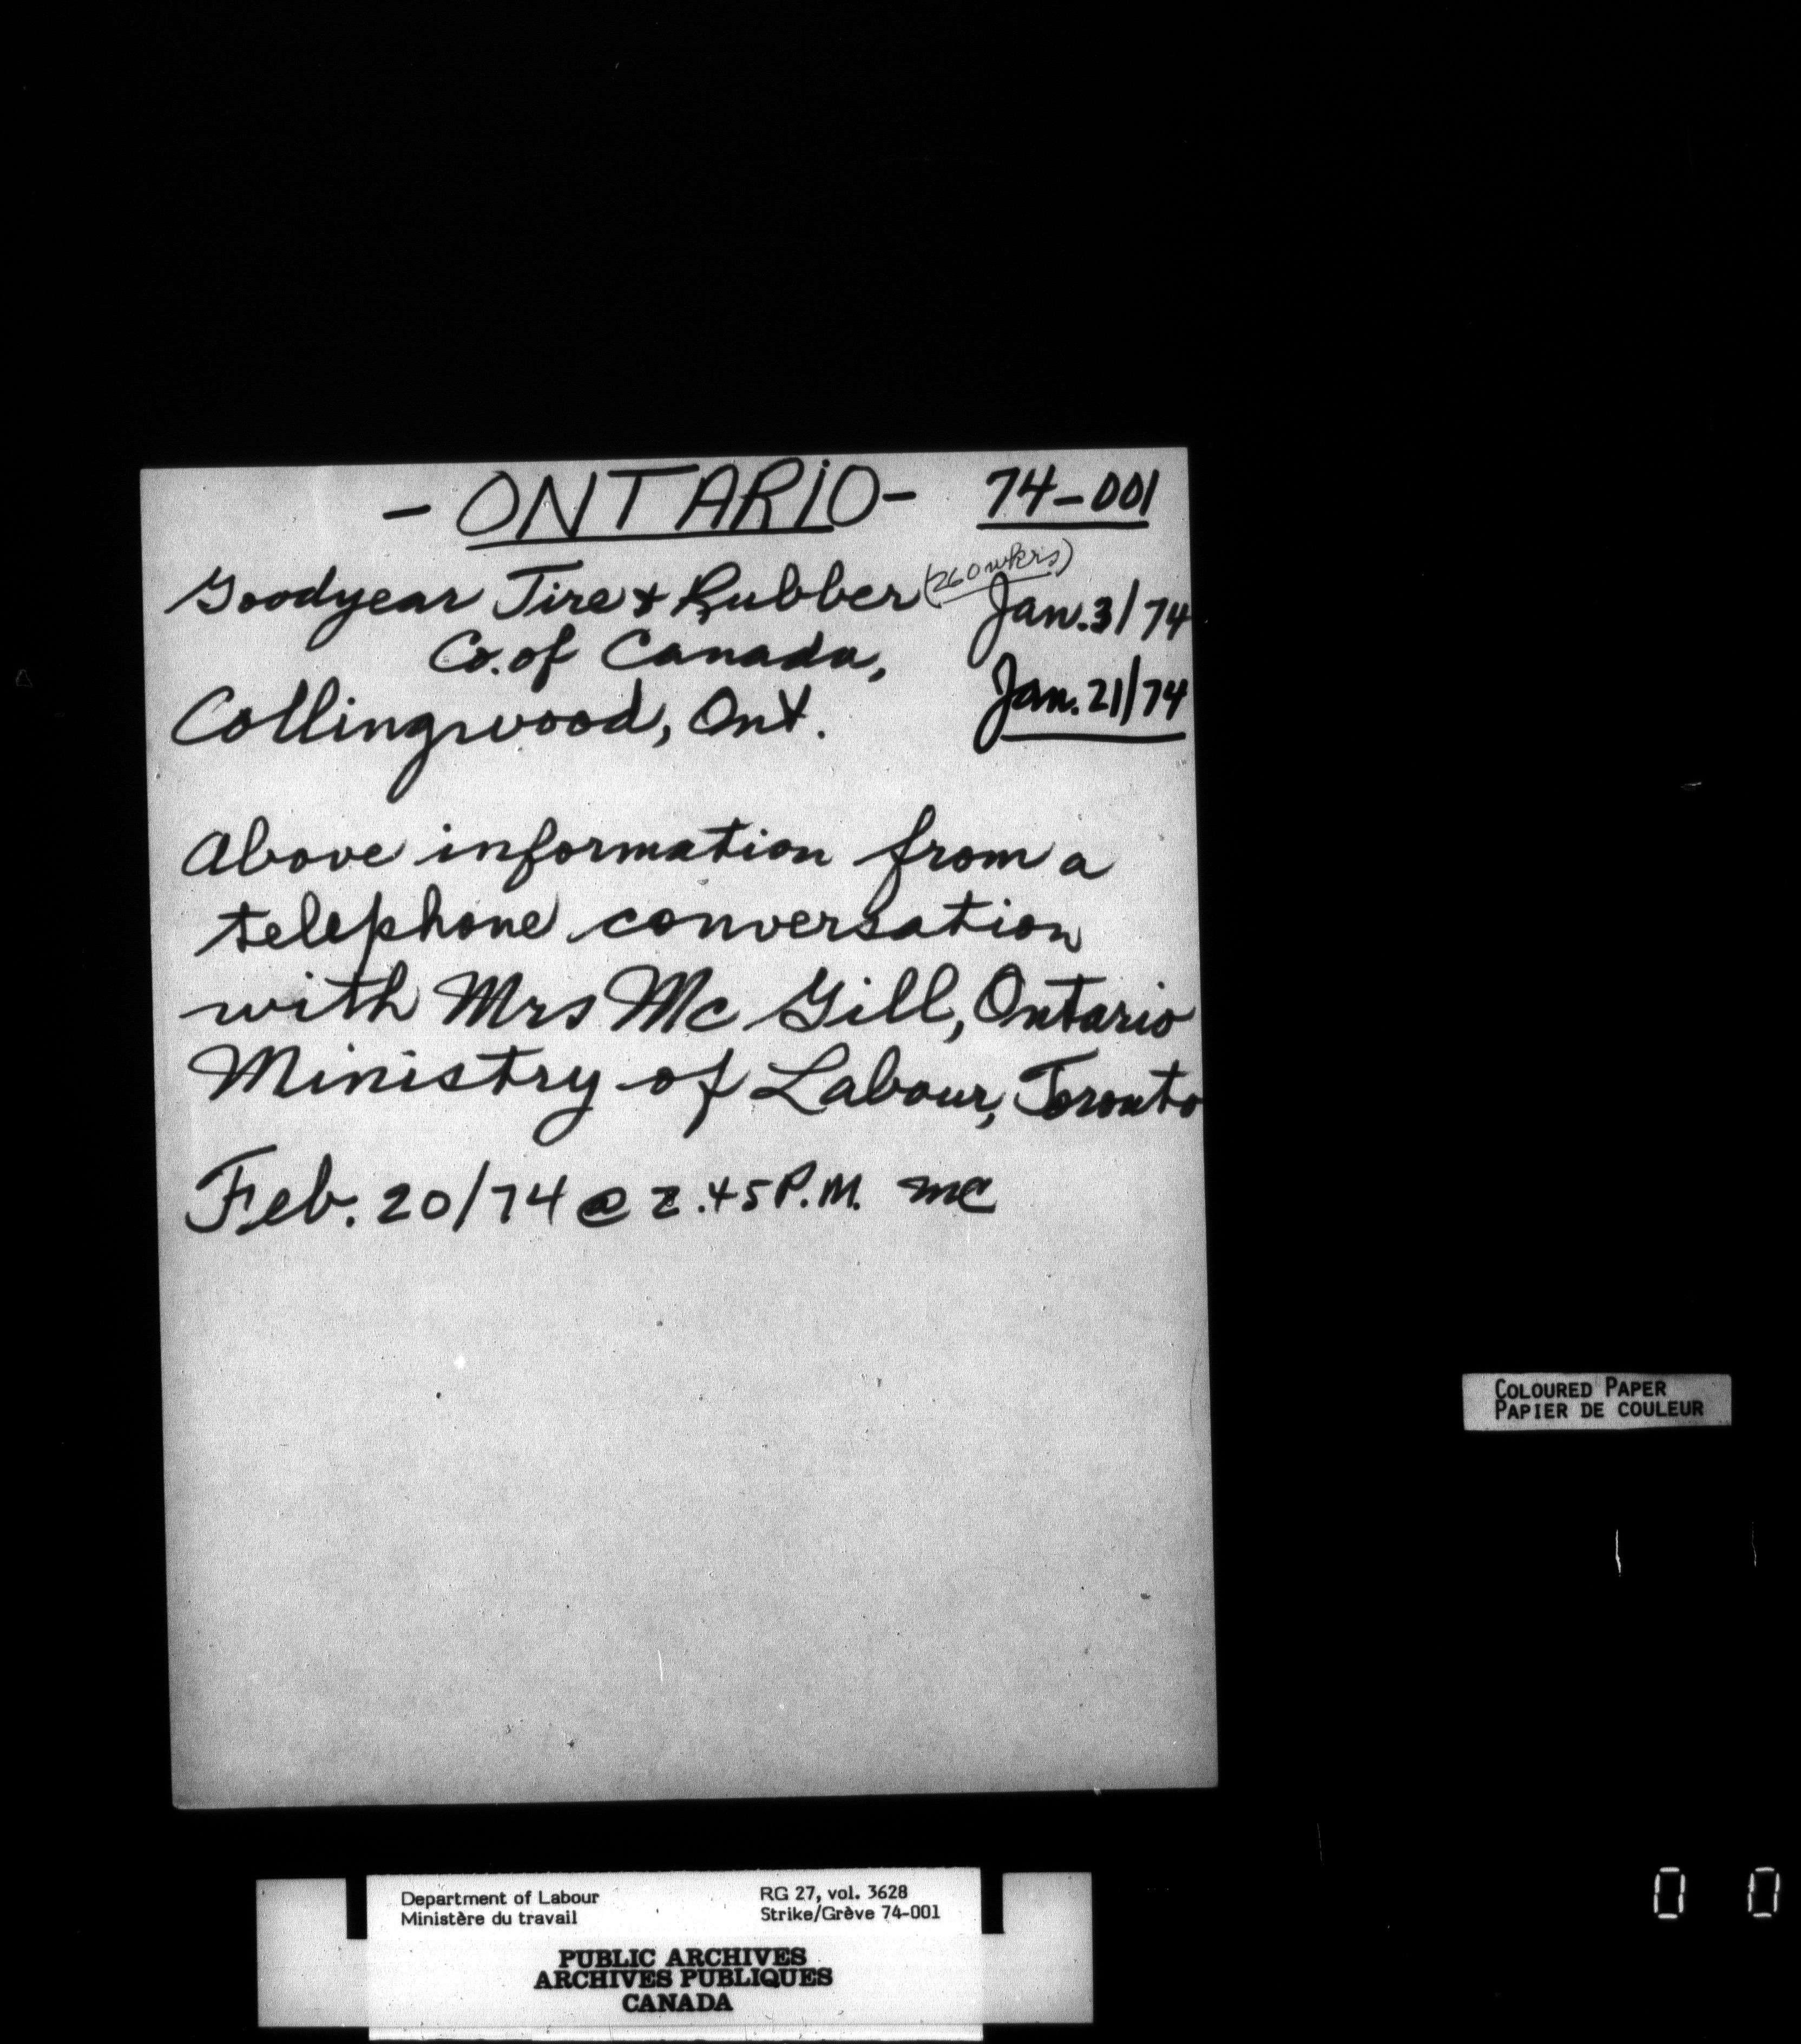 - ONTARIO - 74-001
Goodyear Tire & Rubber (260 wkrs) Jan. 3/74
Co. of Canada,
Collingwood, Ont. Jan. 21/74
Above information from a
telephone conversation
with Mrs Mc Gill, Ontario
Ministry of Labour, Toronto
Feb. 20/74 @ 2.45 P.M. mc
COLOURED PAPER
PAPIER DE COULEUR
Department of Labour RG 27, vol. 3628
Ministère du travail Strike/Grève 74-001
PUBLIC ARCHIVES
ARCHIVES PUBLIQUES
CANADA
0 0